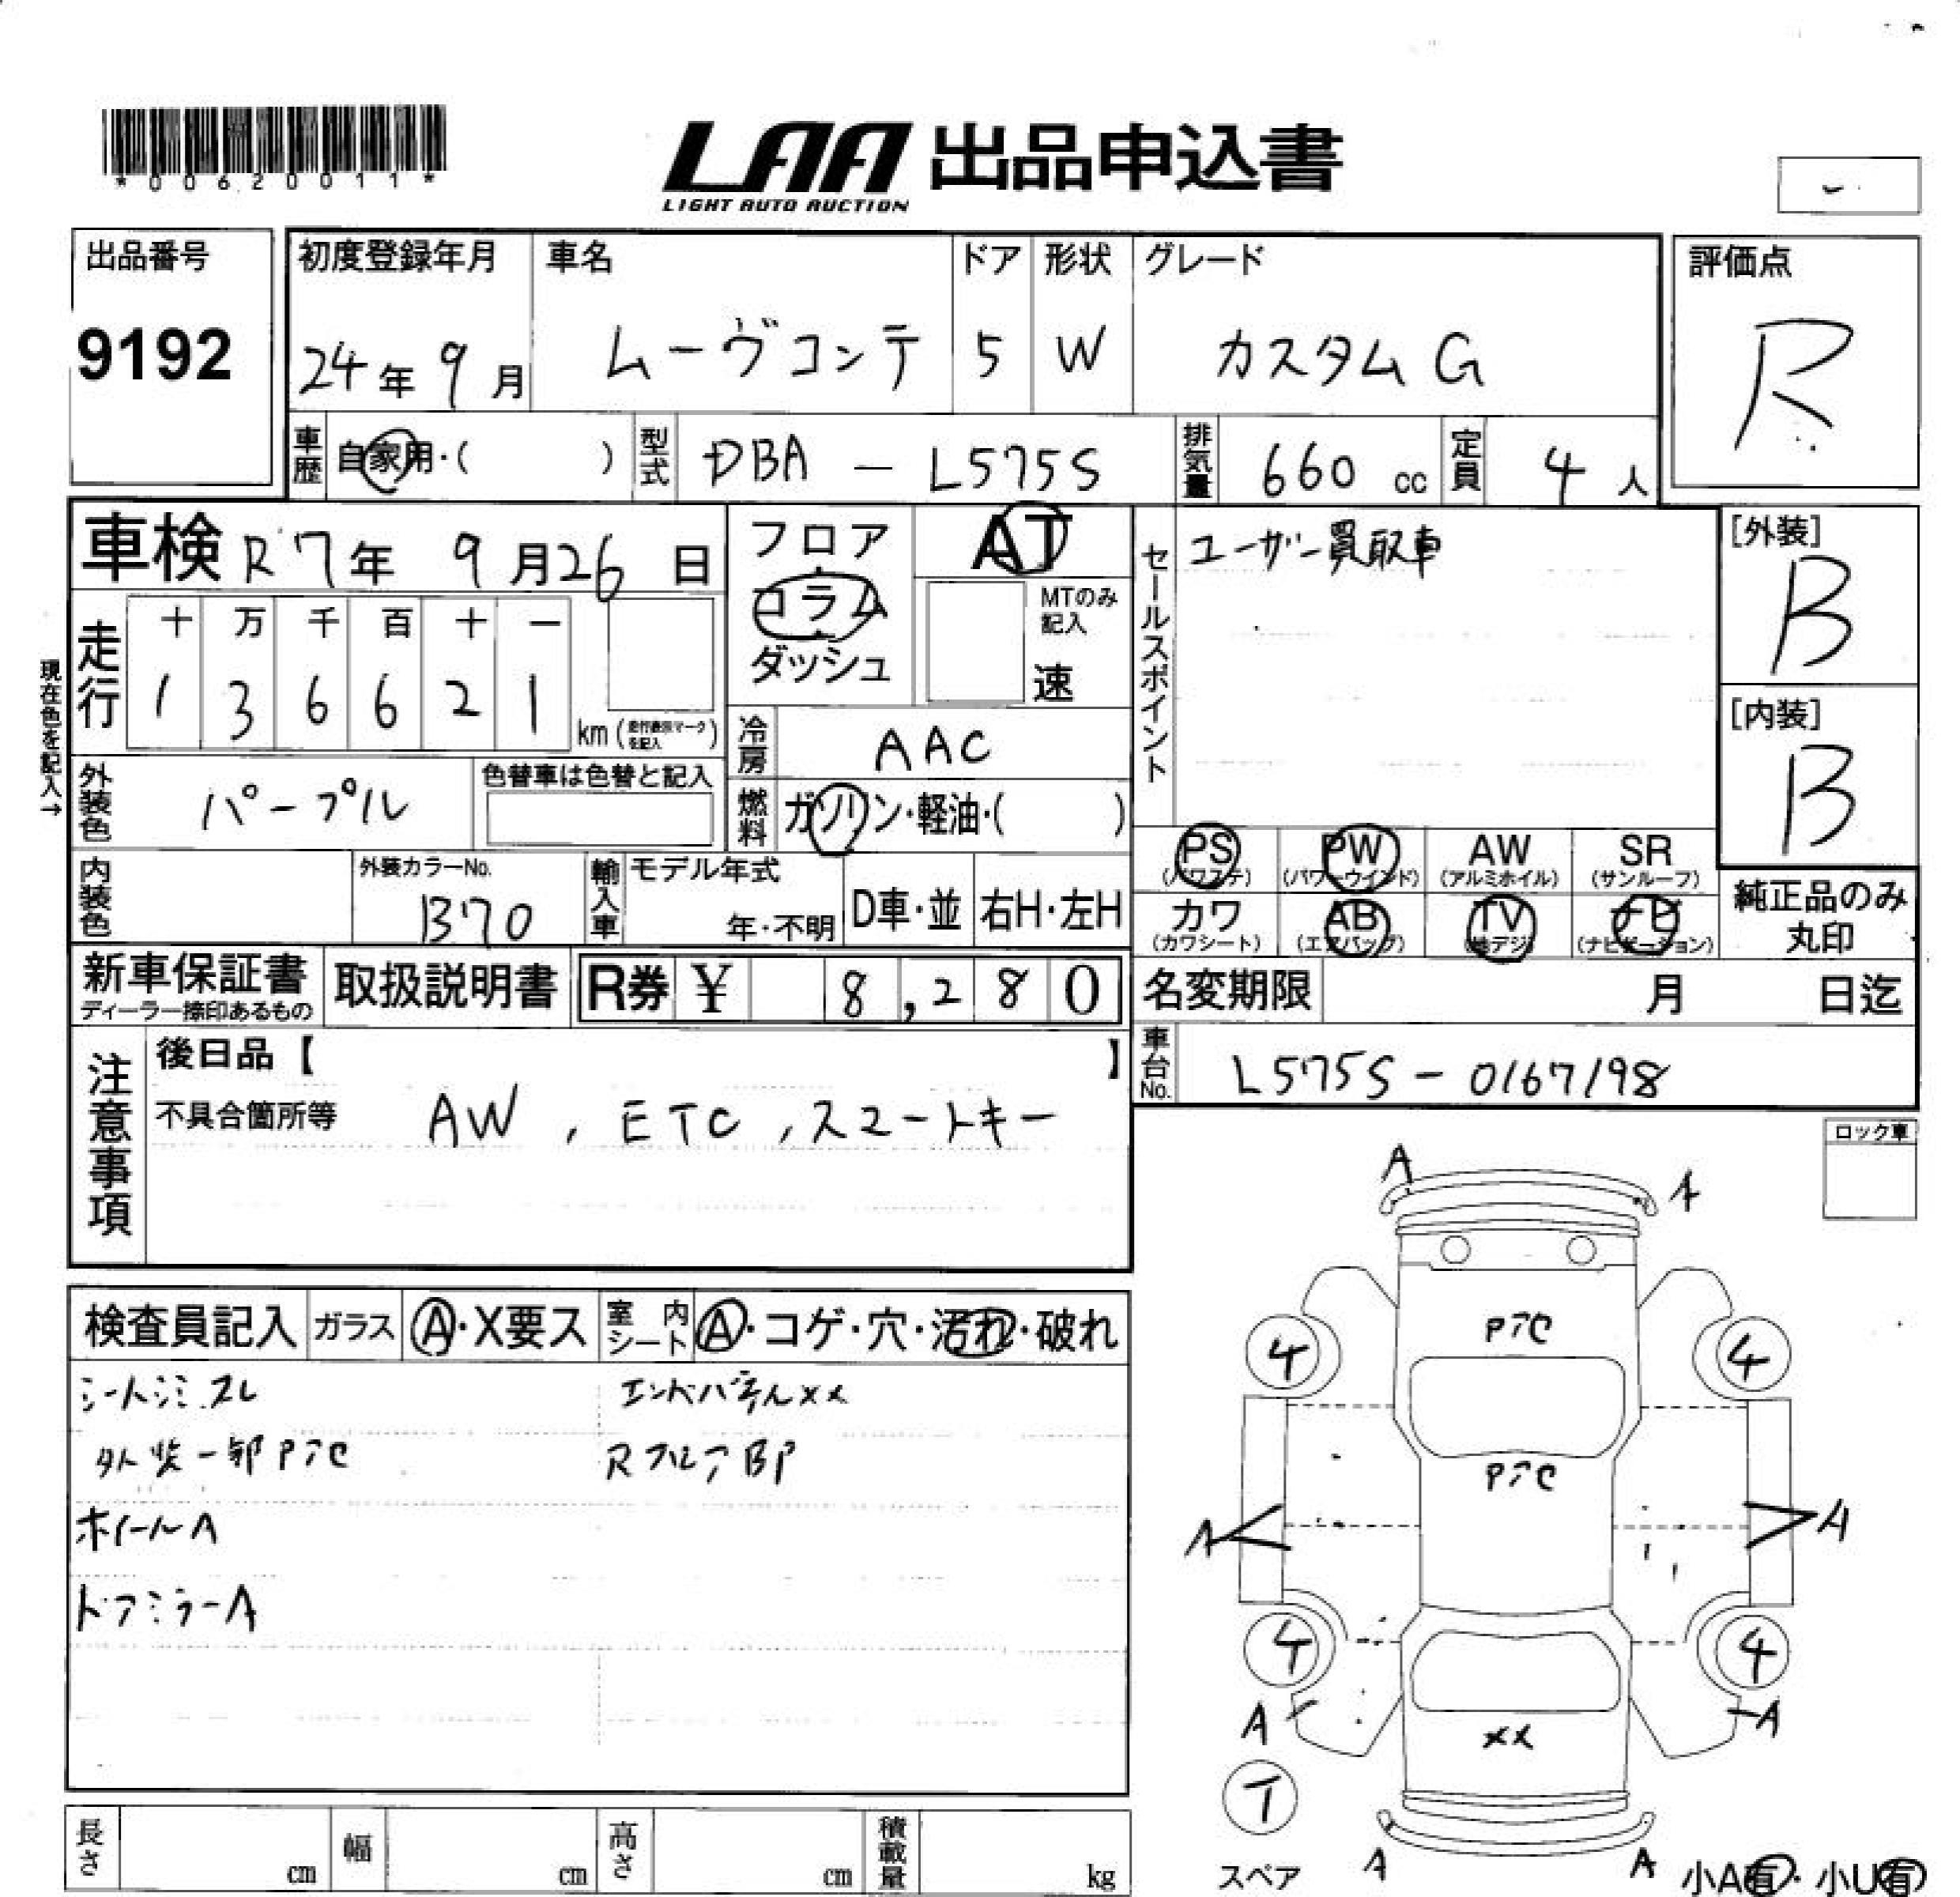 *00620011*
LAA 出品申込書
LIGHT AUTO AUCTION
出品番号 初度登録年月 車名 ドア 形状 グレード 評価点
9192 24年 9月 ムーヴコンテ 5 W カスタムG R
車歴 自家用・( ) 型式 DBA - L575S 排気量 660 cc 定員 4 人
車検 R7年 9月26日 フロア AT セールスポイント ユーザー買取車 [外装]
B
コラム MTのみ記入
ダッシュ 速
現在色を記入→
走行 十 万 千 百 十 一
1 3 6 6 2 1 km (走行表示マークを記入)
[内装]
B
冷房 AAC
外装色 パープル 色替車は色替と記入 燃料 ガソリン・軽油・( )
PS (パワステ) PW (パワーウインド) AW (アルミホイル) SR (サンルーフ)
内装色 外装カラーNo. B70 輸入車 モデル年式 年・不明 D車・並 右H・左H
カワ (カワシート) AB (エアバッグ) TV (地デジ) ナビ (ナビゲーション) 純正品のみ丸印
新車保証書 取扱説明書 R券 ¥ 8,280 名変期限 月 日迄
ディーラー捺印あるもの
車台No. L575S - 0167198
注意事項 後日品【 】
不具合箇所等 AW , ETC , スマートキー
ロック車
検査員記入 ガラス A・X要ス 室内シート A・コゲ・穴・汚れ・破れ
シートシミ.スレ エンドパネルXX
外装一部P7C RフロアBP
ホイールA
ドアミラーA
A A
P7C
4 4
P7C
A A
4 4
A A
XX
T
スペア A A 小A有・小U有
長さ cm 幅 cm 高さ cm 積載量 kg